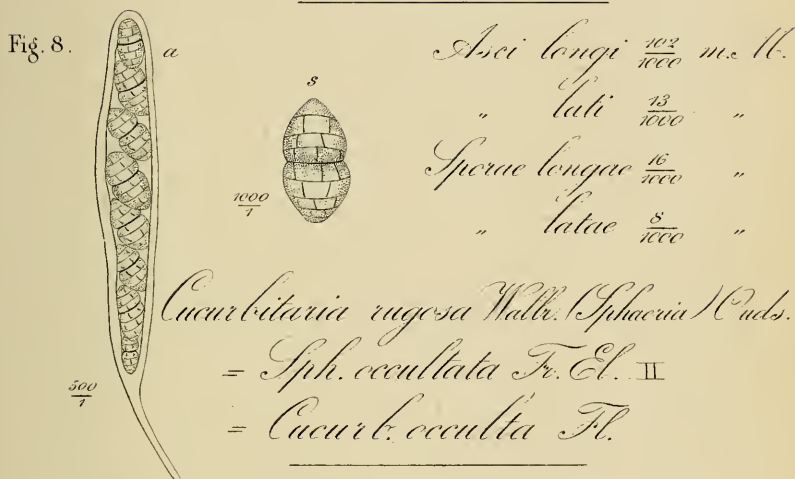 Fig. 8.
a
Asci longi 102/1000 m.M.
„ lati 13/1000 „
s
Sporae longae 16/1000 „
1000/1
„ latae 8/1000 „
Cucurbitaria rugosa Wallr. (Sphaeria) Ouds.
= Sph. occultata Fr. El. II
500/1
= Cucurb. occulta Fl.